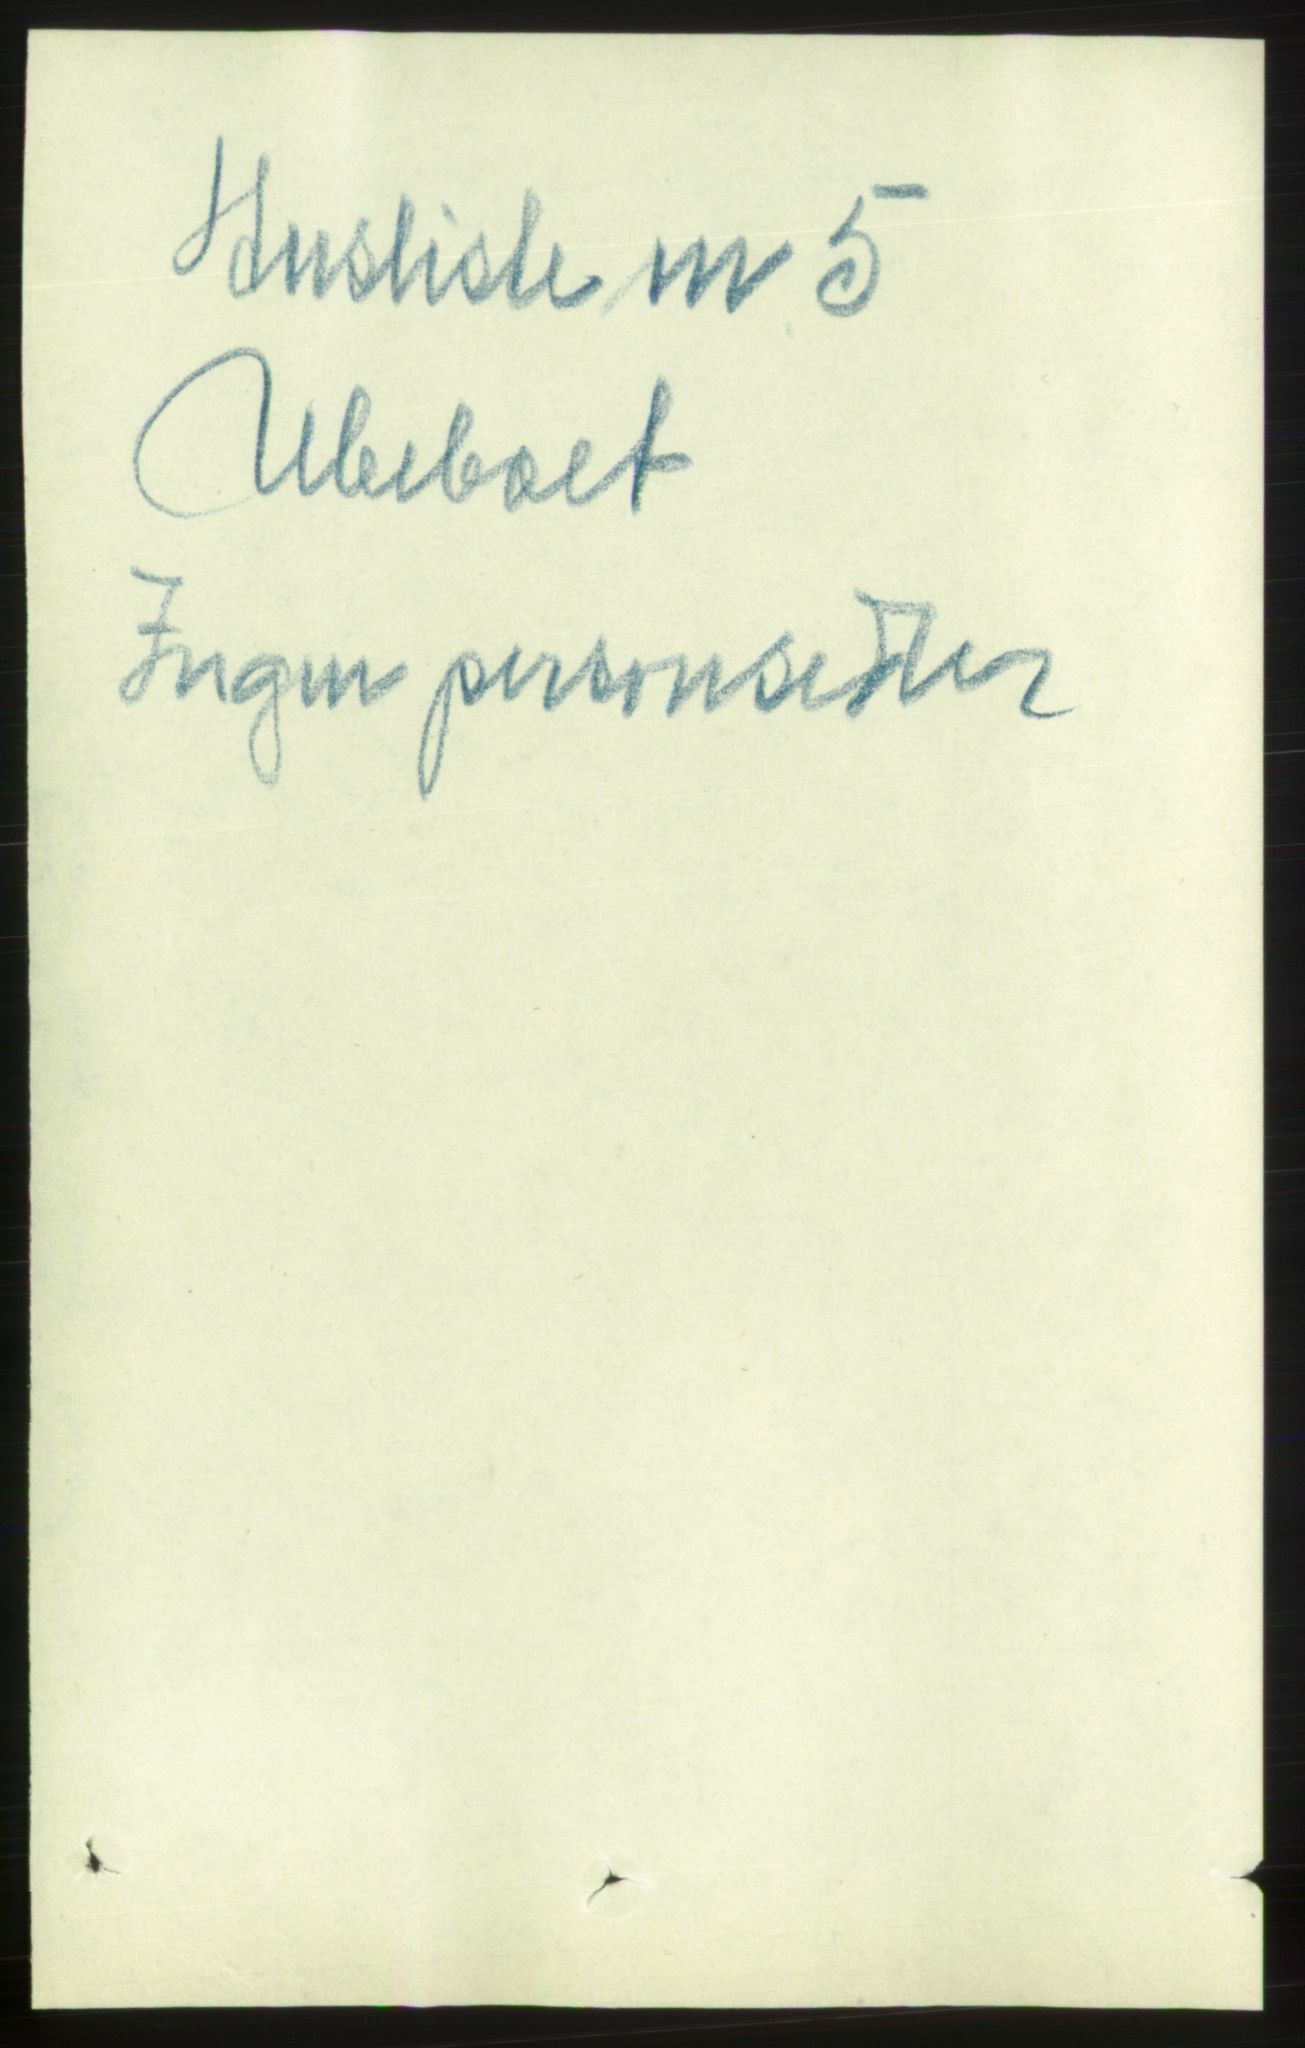 Husliste nr 5
Ubeboet
Ingen personsedler